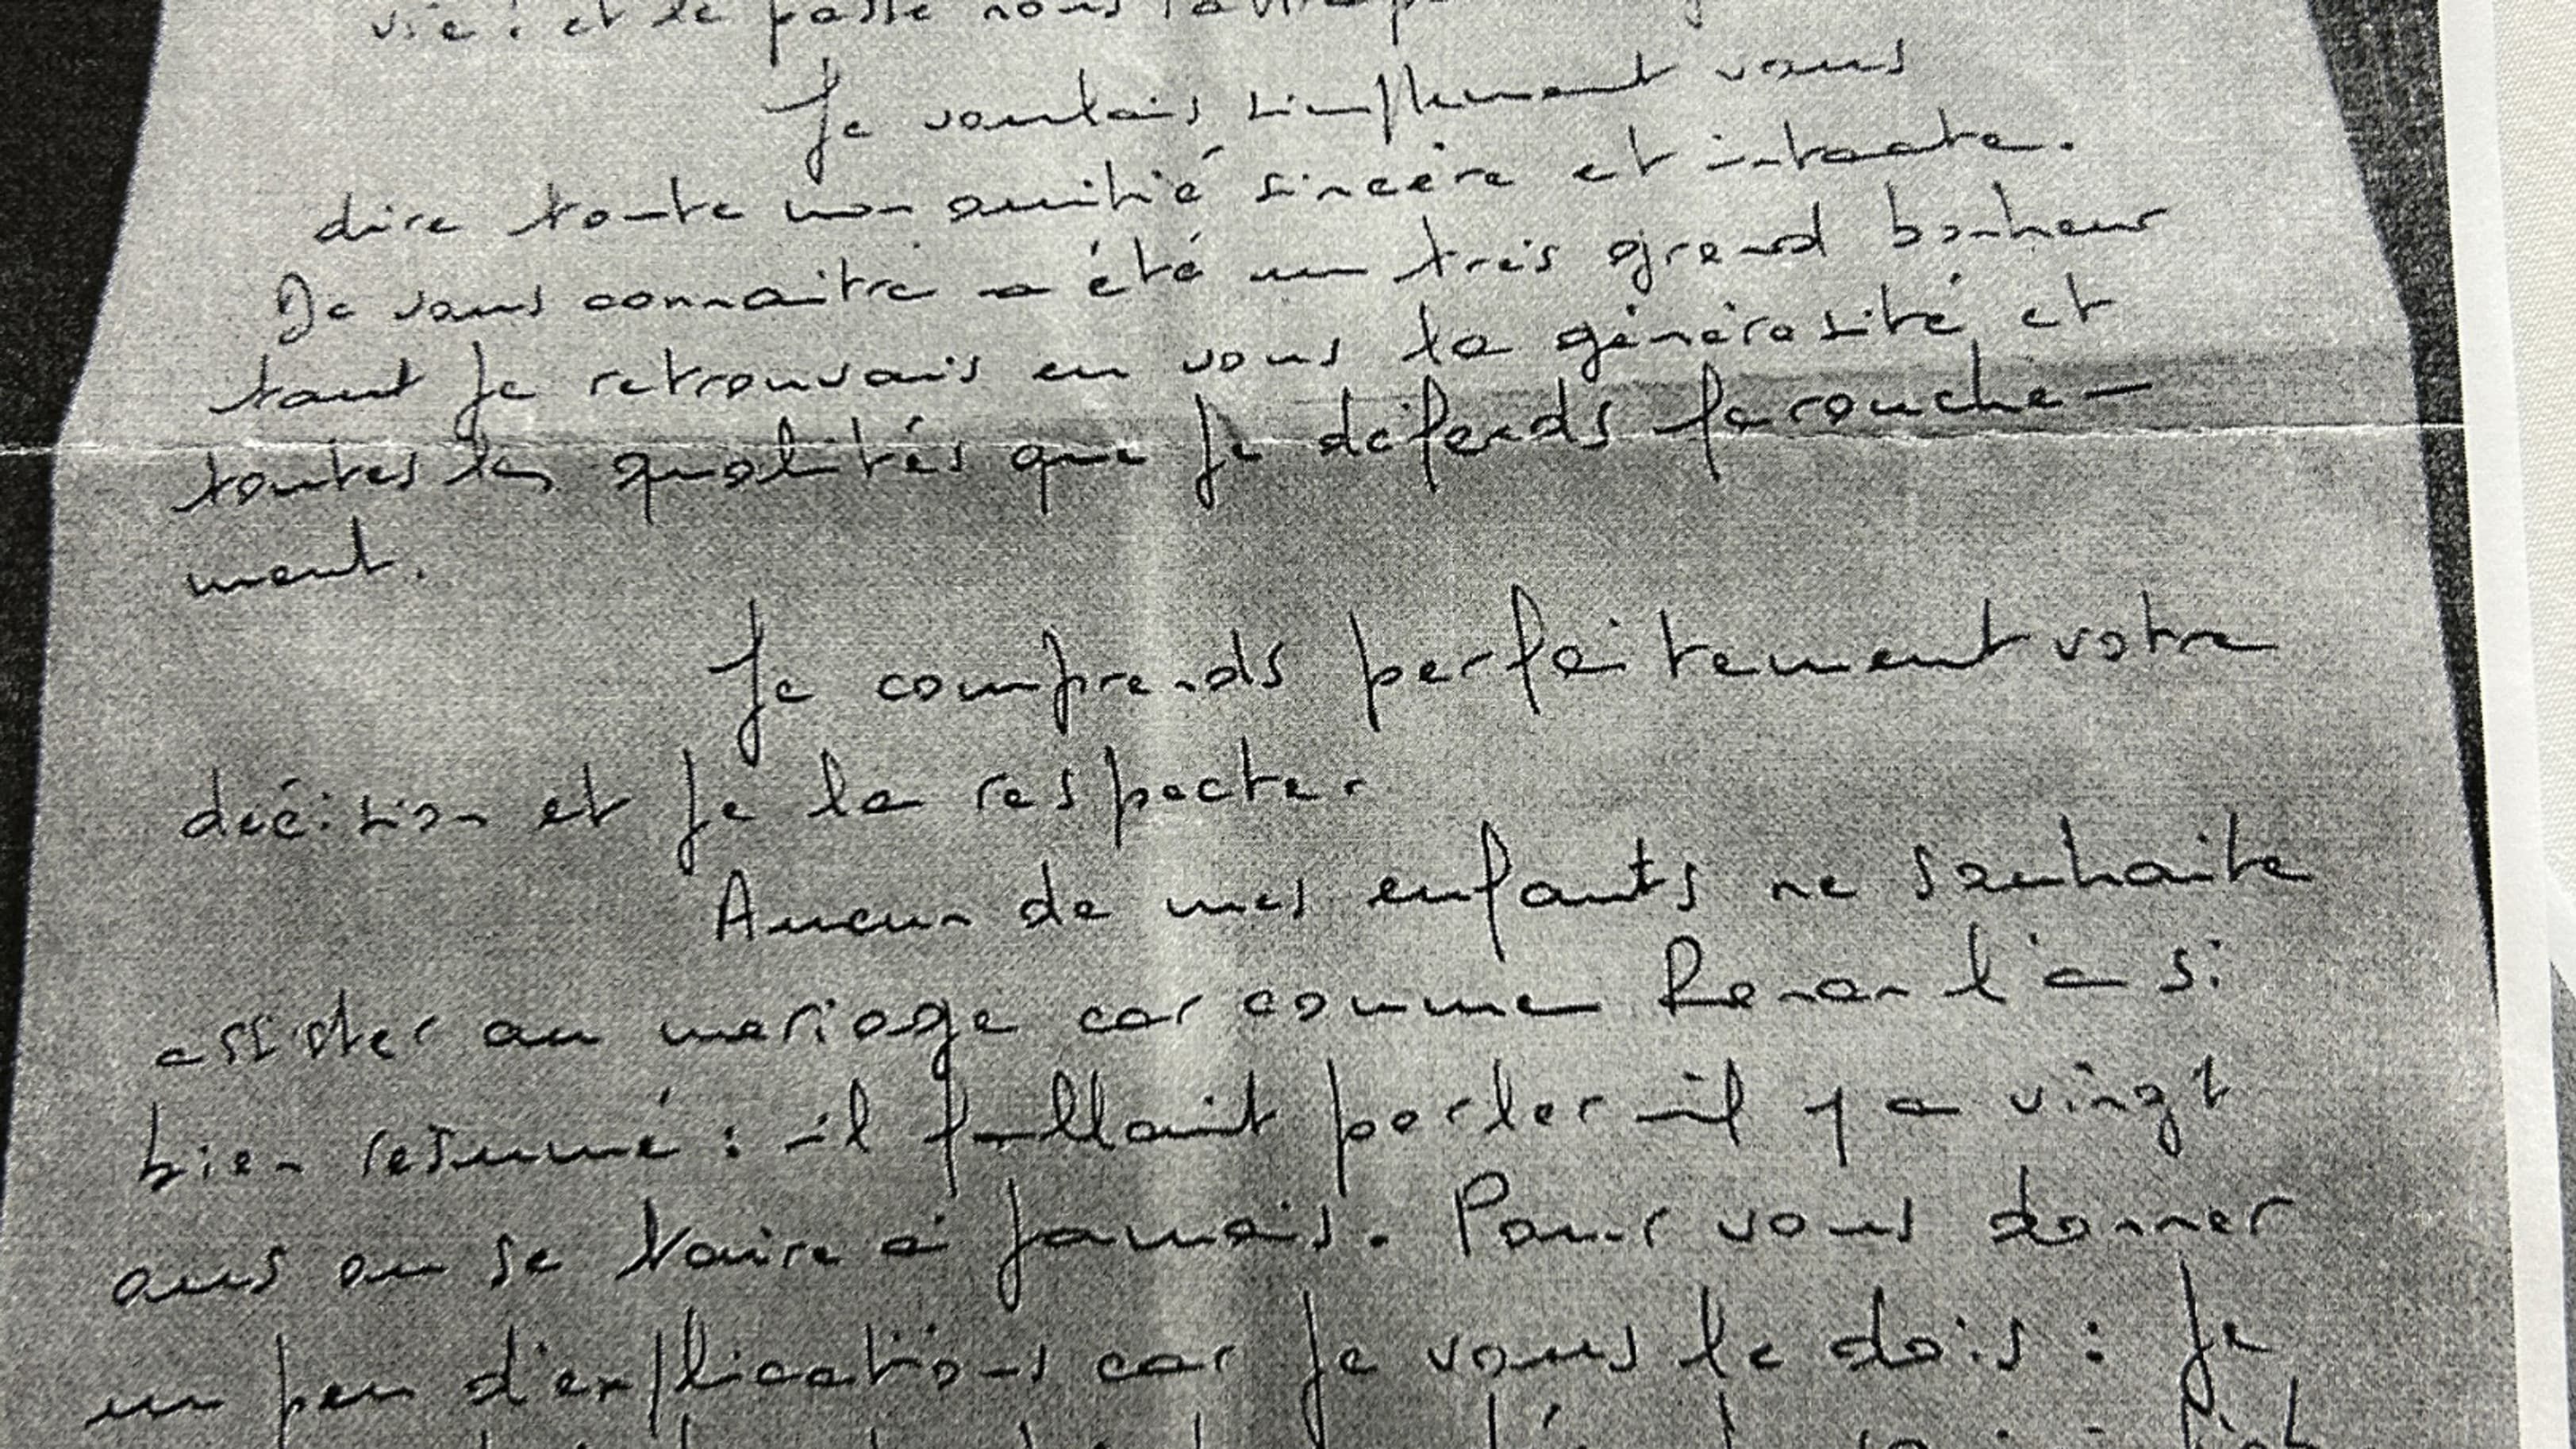 vie ! et le passé nous
Je voulais simplement vous
dire toute mon amitié sincère et intacte.
De vous connaitre a été un très grand bonheur
tant je retrouvais en vous la générosité et
toutes les qualités que je défends farouche-
ment.
Je comprends parfaitement votre
décision et je la respecte.
Aucun de mes enfants ne souhaite
assister au mariage car comme Renan l'a si
bien résumé : il fallait parler il y a vingt
ans ou se taire à jamais. Pour vous donner
un peu d'explications car je vous le dois : je